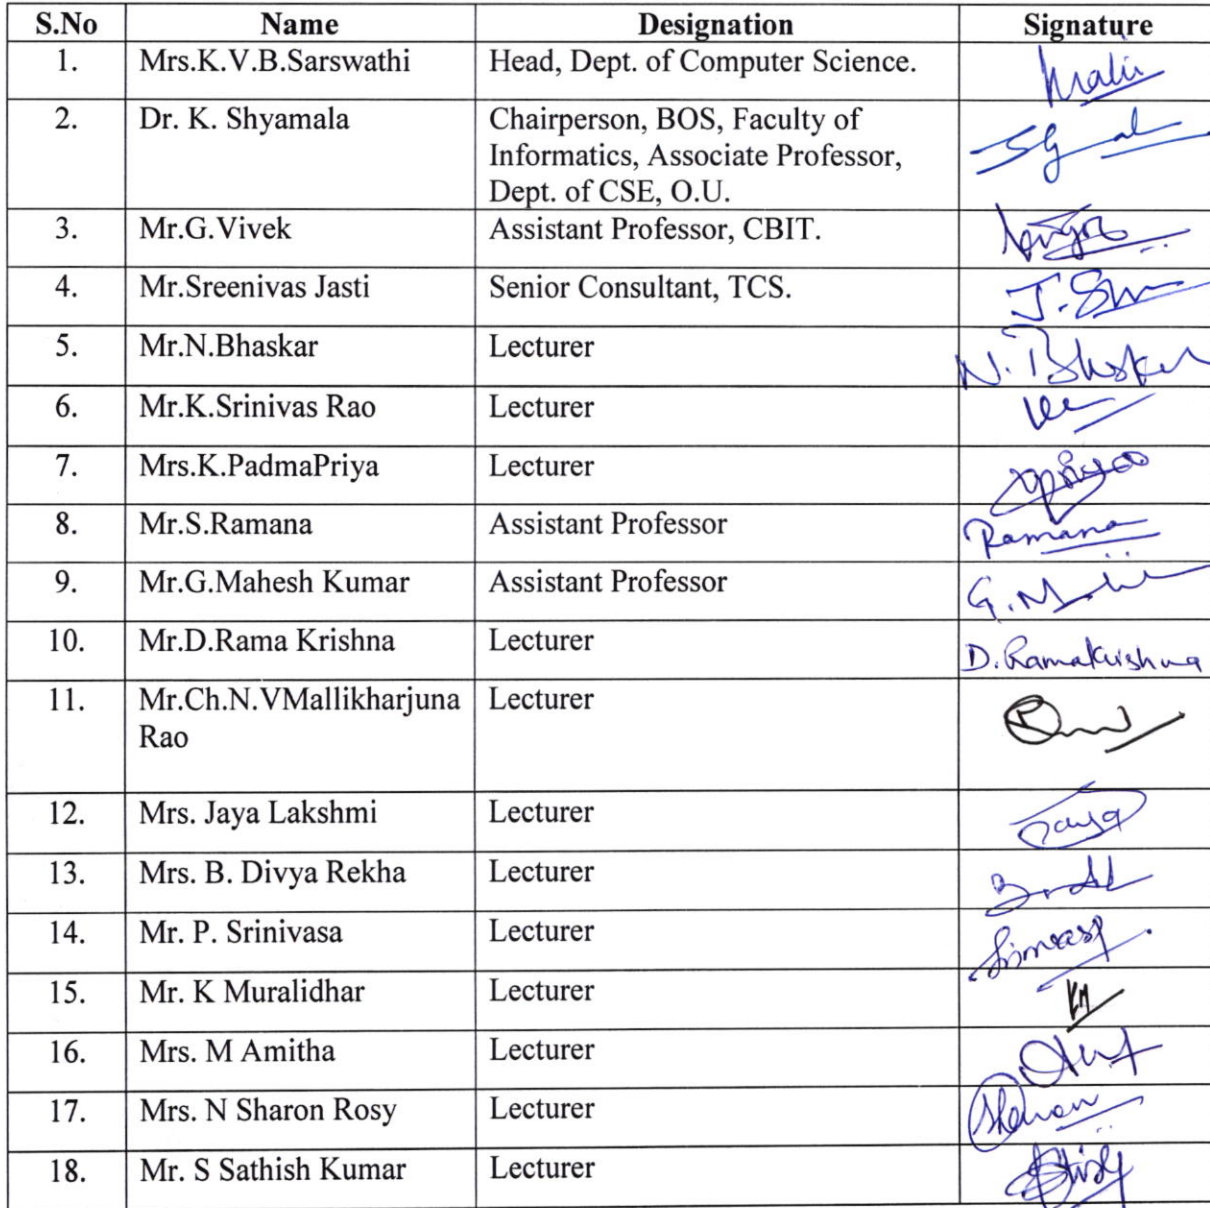 S.No Name Designation Signature
1. Mrs.K.V.B.Sarswathi Head, Dept. of Computer Science.
2. Dr. K. Shyamala Chairperson, BOS, Faculty of
Informatics, Associate Professor,
Dept. of CSE, O.U.
3. Mr.G.Vivek Assistant Professor, CBIT.
4. Mr.Sreenivas Jasti Senior Consultant, TCS.
5. Mr.N.Bhaskar Lecturer N. Bhaskar
6. Mr.K.Srinivas Rao Lecturer
7. Mrs.K.PadmaPriya Lecturer
8. Mr.S.Ramana Assistant Professor Ramana
9. Mr.G.Mahesh Kumar Assistant Professor
10. Mr.D.Rama Krishna Lecturer D. Ramakrishna
11. Mr.Ch.N.VMallikharjuna Lecturer
Rao
12. Mrs. Jaya Lakshmi Lecturer Jaya
13. Mrs. B. Divya Rekha Lecturer
14. Mr. P. Srinivasa Lecturer
15. Mr. K Muralidhar Lecturer KM
16. Mrs. M Amitha Lecturer
17. Mrs. N Sharon Rosy Lecturer Sharon
18. Mr. S Sathish Kumar Lecturer